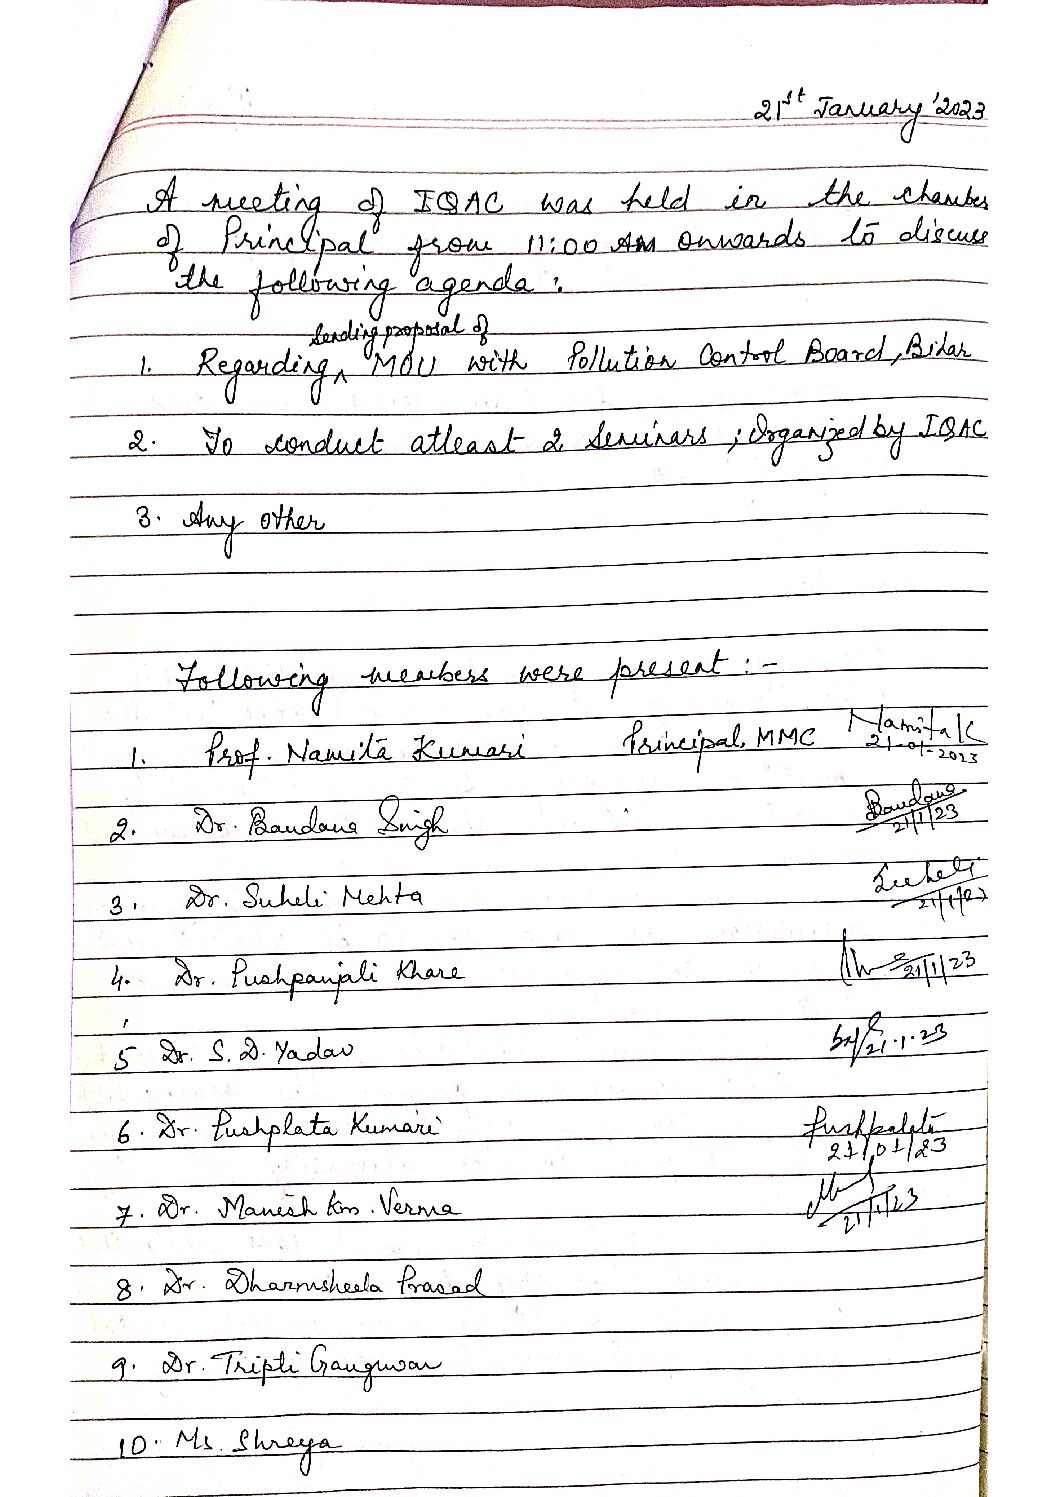 21st January '2023
A meeting of IQAC was held in the chamber
of Principal from 11:00 AM onwards to discuss
the following agenda :
sending proposal of
1. Regarding ^ MOU with Pollution Control Board, Bihar
2. To conduct atleast 2 Seminars ; Organized by IQAC
3. Any other
Following members were present : -
1. Prof. Namita Kumari Principal, MMC Namita K
21-01-2023
2. Dr. Bandana Singh Bandana
21/1/23
3. Dr. Suheli Mehta Suheli
21/1/23
4. Dr. Pushpanjali Khare 21/1/23
5 Dr. S. D. Yadav 21.1.23
6. Dr. Pushplata Kumari Pushpalata
21/01/23
7. Dr. Manish Km. Verma
21/1/23
8. Dr. Dharmsheela Prasad
9. Dr. Tripti Gangwar
10. Ms. Shreya